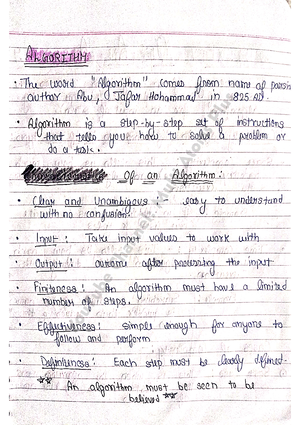 ALGORITHM
• The word "Algorithm" comes from name of
author Abu, Jafar Mohammad in 825 AD.
• Algorithm is a step-by-step set of instructions
that tells you how to solve a problem or
do a task.
Of an Algorithm:
• Clear and Unambiguous : easy to understand
with no confusion.
• Input : Take input values to work with
• Output : outcome after processing the input
• Finiteness : An algorithm must have a limited
number of steps.
• Effectiveness : simple enough for anyone to
follow and perform
• Definiteness : Each step must be clearly defined.
** An algorithm must be seen to be
believed **